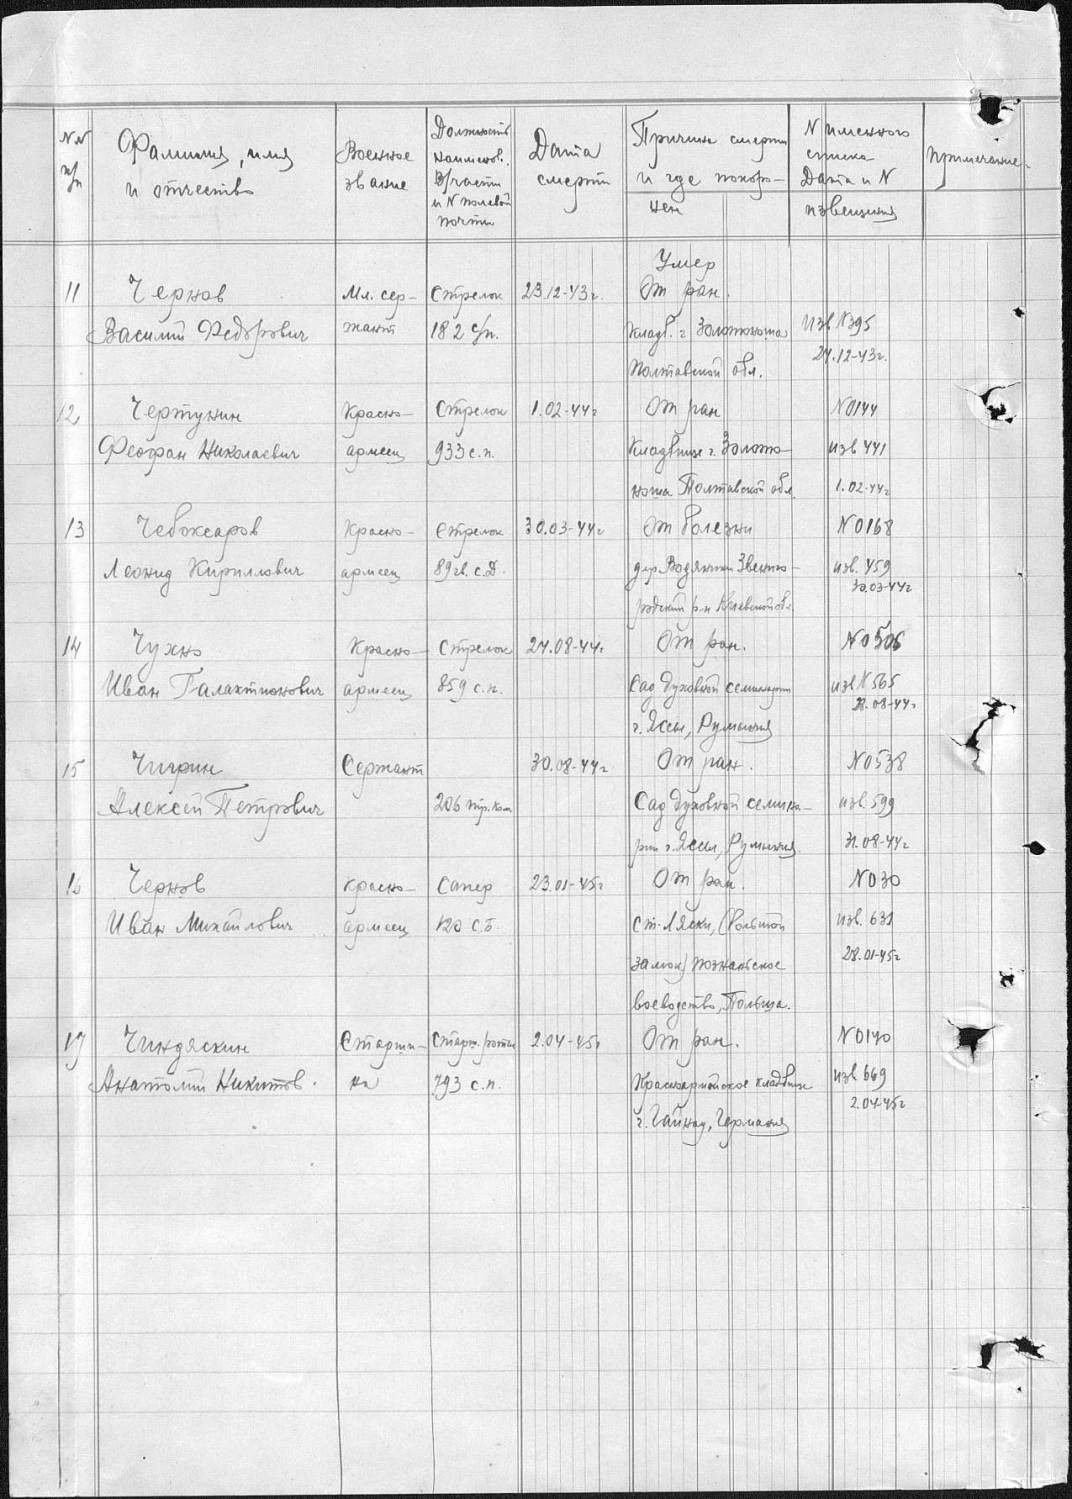 NN п/п
Фамилия, имя
и отчество
Военное
звание
Должность
наименов.
в/части
и N полевой
почты
Дата
смерти
Причина смерти
и где похоро-
нен
N именного
списка
Дата и N
извещения
примечание
Умер
11 Чернов Мл. сер- Стрелок 23.12-43г. От ран.
Василий Федорович жант 182 с/п. Кладб. г. Золотоноша Изв N395
Полтавской обл. 24.12-43г.
12 Чертунин Красно- Стрелок 1.02-44г От ран N0144
Феофан Николаевич армеец 933 с.п. Кладбище г. Золото- изв 441
ноша Полтавской обл. 1.02-44г
13 Чебоксаров Красно- Стрелок 30.03-44г От болезни N0168
Леонид Кириллович армеец 89 гв. с.д. дер. Водяники Звениго- изв. 459
родский р-н Киевской обл. 30.03-44г
14 Чухно Красно- Стрелок 27.08-44г От ран. N0506
Иван Галактионович армеец 859 с.п. Сад духовной семинарии изв N 565
г. Яссы, Румыния 28.08-44г
15 Чигрин Сержант 30.08-44г От ран. N0538
Алексей Петрович 206 тр. Сад духовной семина- изв. 599
рии г. Яссы, Румыния. 31.08-44г
16 Чернов Красно- Сапер 23.01-45г От ран. N030
Иван Михайлович армеец 120 с.б. ст. Ляски, изв. 631
замок) познаньское 28.01-45г
воеводство, Польша.
17 Чиндяскин Старши- Старш. роты 2.04-45г От ран. N0140
Анатолий Никитов. на 793 с.п. Красноармейское кладбище изв 669
г. Гайнау, Германия 2.04-45г